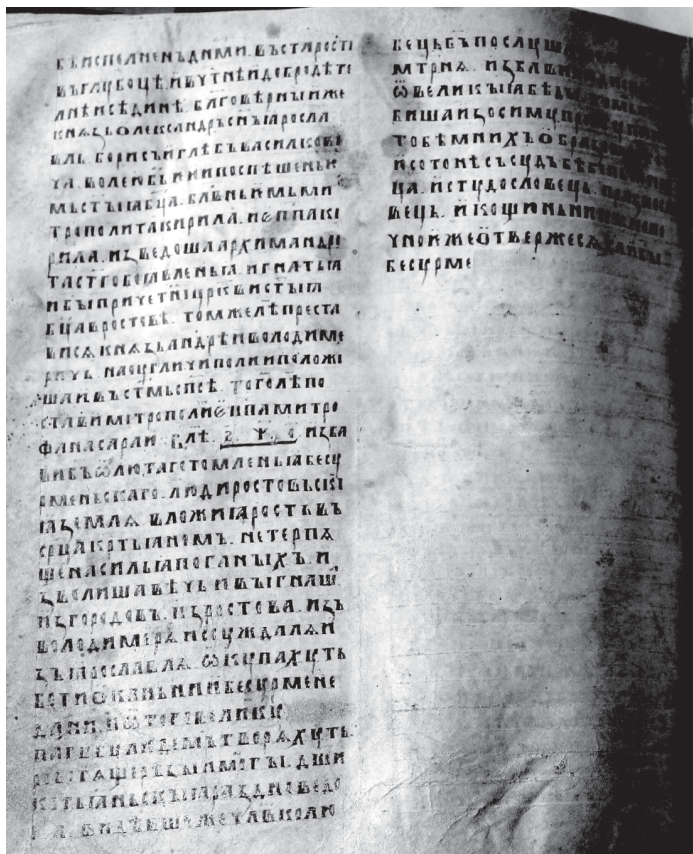 бѣ исполненъ дн҃ми. въ старости
въ глубоцѣ. и в чтнѣи добродѣте
лнѣи сѣдинѣ. бл҃говѣрныи же
кнѧзь ѡлександръ сн҃ъ ꙗросла
вль. борисъ и глѣбъ василкови
ча. волеи б҃иеи и поспѣшеньи
мь ст҃ыꙗ бц҃а. бл҃вньимь ми
трополита кирила. и еп҃па ки
рила. изведоша архимандри
та ст҃го бо҃ꙗвленьꙗ. игнатьꙗ
и бы҃ причетни црк҃ви ст҃ыꙗ
бц҃а в ростовѣ. том же лѣ преста
висѧ кнѧзь андрѣи володиме
ричь. на оугличи поли и положи
ша и въ ст҃мь сп҃сѣ. того лѣ по
стави митрополи еп҃па митро
фана сараи. в лѣ҃. ҂ѕ. ѱ. о҃. изба
ви бъ҃ ѿ лютаг томленьꙗ бесу
рменьскаго. люди ростовьскиꙗ
ꙗ землѧ. вложи ꙗрость въ
срц҃а крт҃ьꙗномъ. не терпѧ
ще насильꙗ поганыхъ. и
зволиша вѣчь и выгнаш
из городовъ. из ростова. изъ
володимерѧ ис суждалѧ и
зъ ꙗрославлѧ. ѿкупахуть
бо ти ѡканьнии бесурмене
дани. и ѿ того велику
пагубу людемъ творѧхуть.
роботѧще рѣзы и мо҃гы. дш҃и
крт҃ьꙗньскыꙗ раздно ведо
ша. видѣвш же чл҃вколю
бець бъ҃ послуша
мт҃рнѧ. избави
ѿ великыꙗ бѣды. томь
биша изосиму
то бѣ мнихъ ѡбра
и сотонѣ съсудъ бѣ бо
ца. и студословець. празнос
вець. и кощюньни
чной же ѿвержесѧ х҃а и бы҃
бесурме